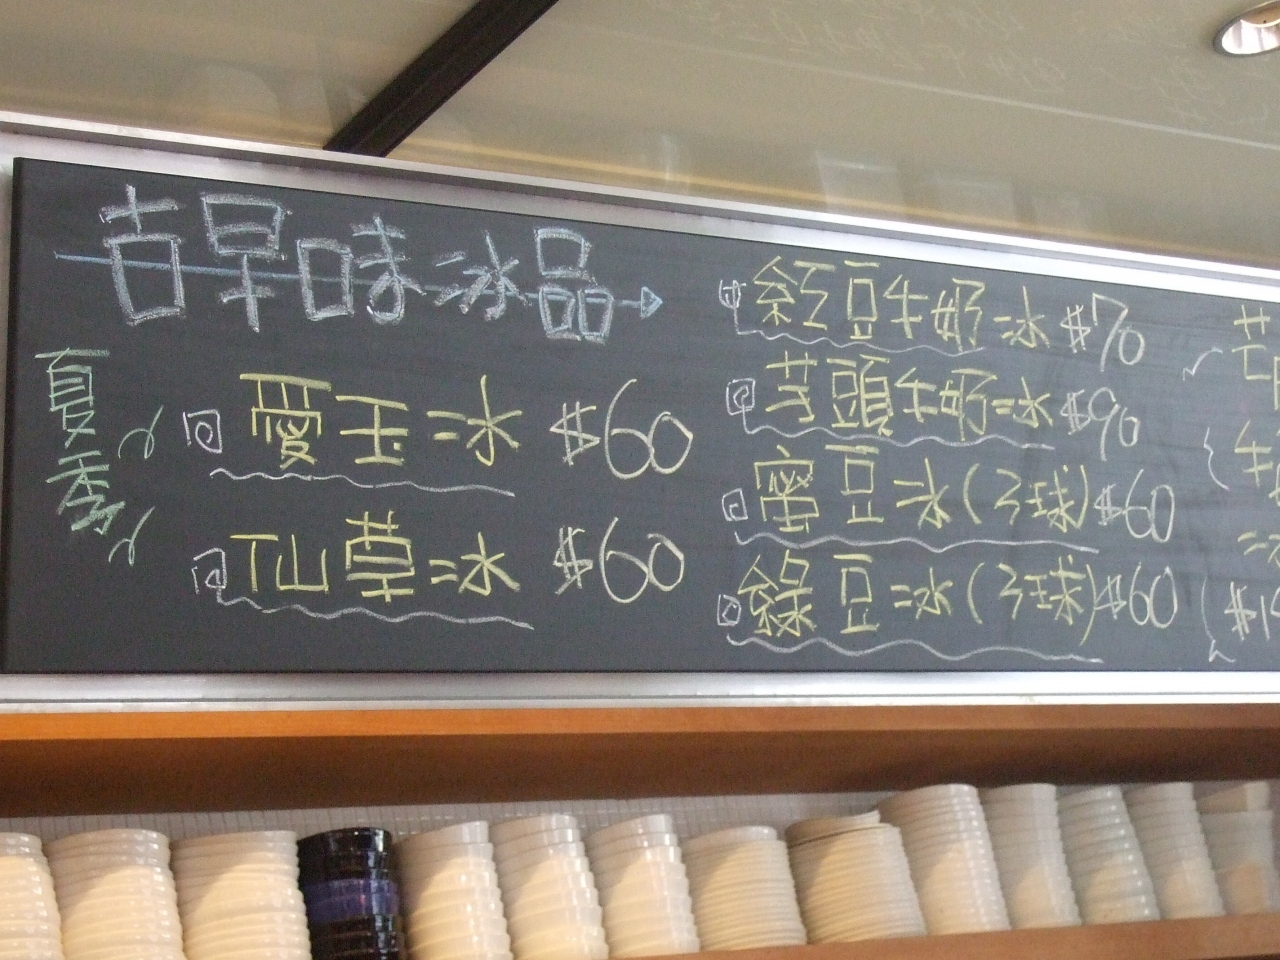 古早味冰品
夏季
愛玉冰 $60
仙草冰 $60
紅豆牛奶冰 $70
芋頭牛奶冰 $90
蜜豆冰(3球) $60
綠豆冰(3球) $60